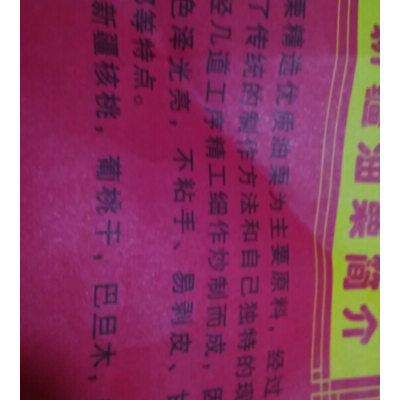 新疆油栗简介
栗精选优质油栗为主要原料，经过
了传统的制作方法和自己独特的现
经几道工序精工细作炒制而成，因
色泽光亮，不粘手、易剥皮、甘
等特点。
新疆核桃，葡桃干，巴旦木，